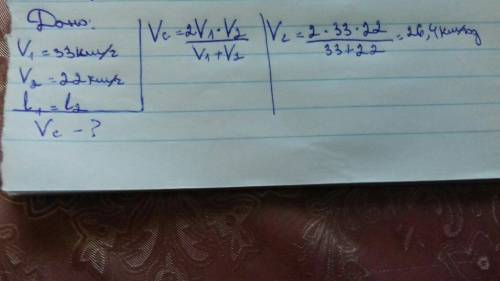 Дано:
V₁ = 33 км/г
V₂ = 22 км/г
l₁ = l₂
Vc - ?
Vc = 2V₁ · V₂ / V₁ + V₂
Vc = 2 · 33 · 22 / 33 + 22 = 26,4 км/год